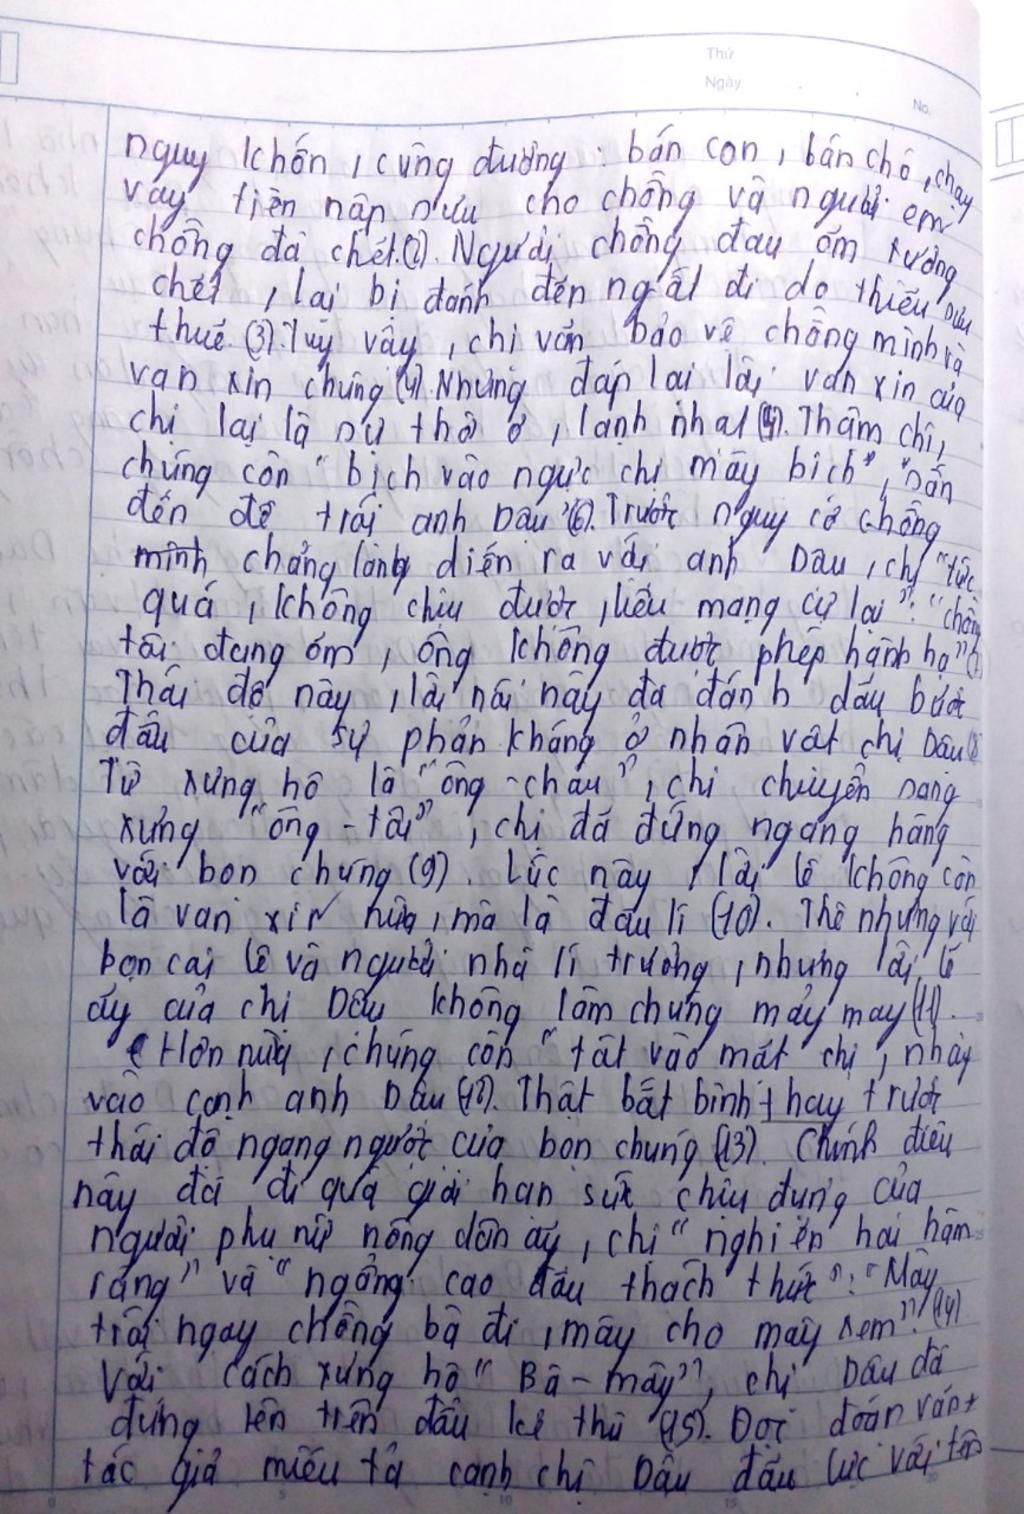 Thứ
Ngày
No.
nguy khốn, cùng đường: bán con, bán chó, chạy
vạy tiền nộp sưu cho chồng và người em
chồng đã chết.(2). Người chồng đau ốm tưởng
chết, lại bị đánh đến ngất đi do thiếu sưu
thuế.(3). Tuy vậy, chị vẫn bảo vệ chồng mình và
van xin chúng (4). Nhưng đáp lại lời van xin của
chị lại là sự thờ ơ, lạnh nhạt (5). Thậm chí,
chúng còn "bịch vào ngực chị mấy bịch", "sấn
đến để trói anh Dậu"(6). Trước nguy cơ chồng
mình chẳng lành diễn ra với anh Dậu, chị "tức
quá, không chịu được, liều mạng cự lại": "chồng
tôi đang ốm, ông không được phép hành hạ"(7)
Thái độ này, lời nói này đã đánh dấu bước
đầu của sự phản kháng ở nhân vật chị Dậu (8
Từ xưng hô là "ông - cháu", chị chuyển sang
xưng "ông - tôi", chị đã đứng ngang hàng
với bọn chúng (9). Lúc này, lời lẽ không còn
là van xin nữa, mà là đấu lí (10). Thế nhưng với
bọn cai lệ và người nhà lí trưởng, nhưng lời lẽ
ấy của chị Dậu không làm chúng mảy may (11).
Hơn nữa, chúng còn "tát vào mặt chị, nhảy
vào cạnh anh Dậu (12). Thật bất bình thay trước
thái độ ngang ngược của bọn chúng (13). Chính điều
này đã đi quá giới hạn sức chịu đựng của
người phụ nữ nông dân ấy, chị "nghiến hai hàm
răng" và "ngẩng cao đầu thách thức": "Mày
trói ngay chồng bà đi, mày cho mày xem"! (14)
Với cách xưng hô "Bà - mày", chị Dậu đã
đứng lên trên đầu kẻ thù (15). Đọc đoán văn
tác giả miêu tả cảnh chị Dậu đấu lực với tên